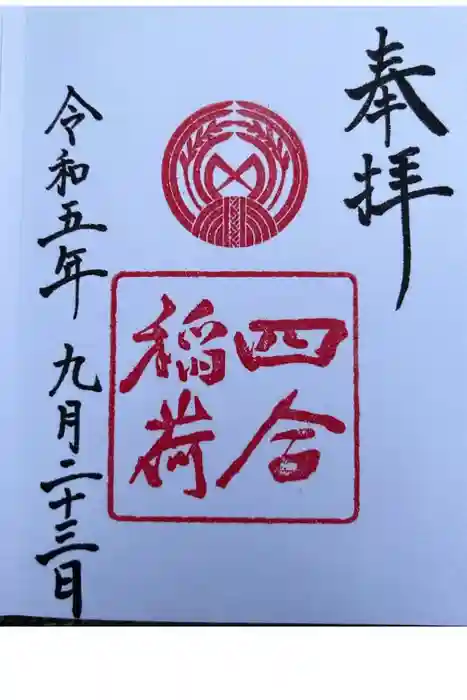 奉拝
四合
稲荷
令和五年 九月二十三日